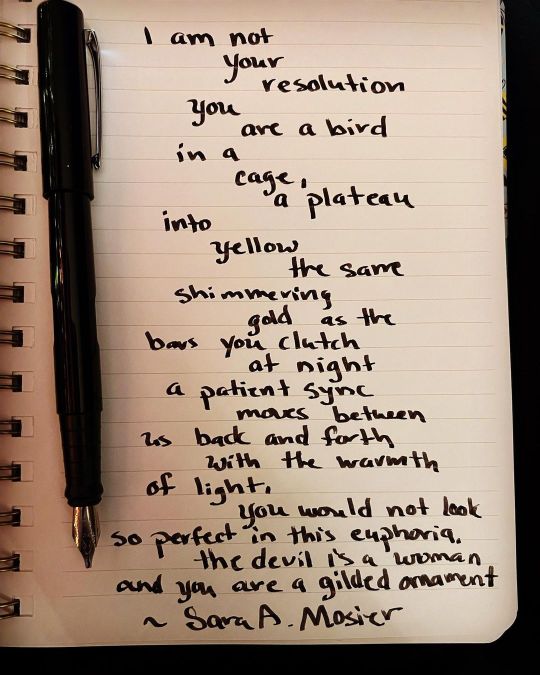 I am not
your
resolution
you
are a bird
in a
cage,
a plateau
into
yellow
the same
shimmering
gold as the
bars you clutch
at night
a patient sync
moves between
us back and forth
with the warmth
of light,
you would not look
so perfect in this euphoria.
the devil is a woman
and you are a gilded ornament
~ Sara A. Mosier